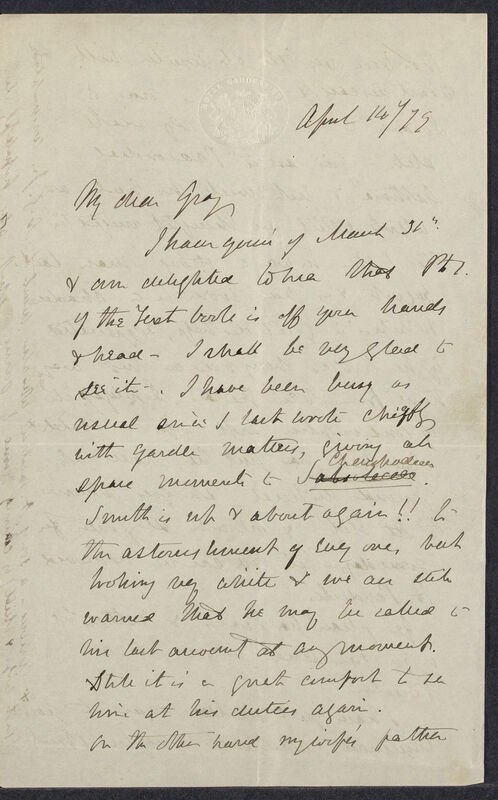 ROYAL GARDENS KEW
April 14/79
My dear Gray
I have yours of March 31st.
& am delighted to hear that Pt I.
of the Text book is off your hands
& head – I shall be very glad to
see it – . I have been busy as
usual since I last wrote chiefly
with garden matters, giving all
Chenopodeae
spare moments to .
Smith is up & about again!! to
the astonishment of every one, but
looking very white & we are still
warned that he may be called to
his last account at any moment.
Still it is a great comfort to see
him at his duties again.
On the other hand my wife's father